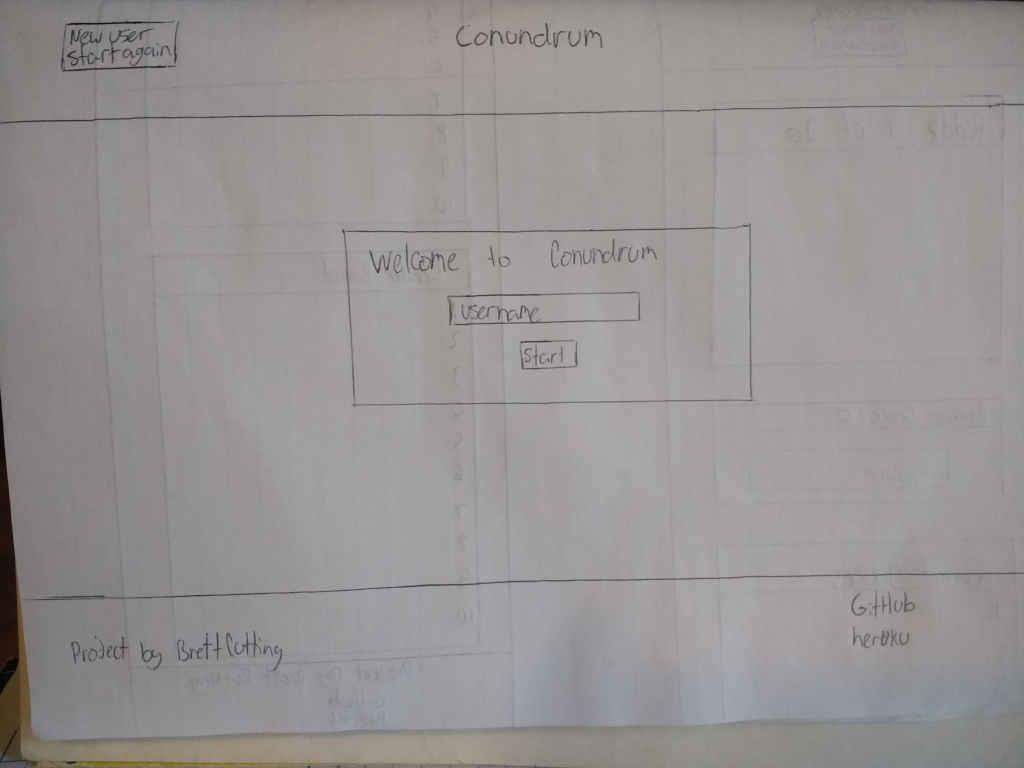 New user
start again
Conundrum
Welcome to Conundrum
username
Start
Project by Brett Cutting
GitHub
heroku